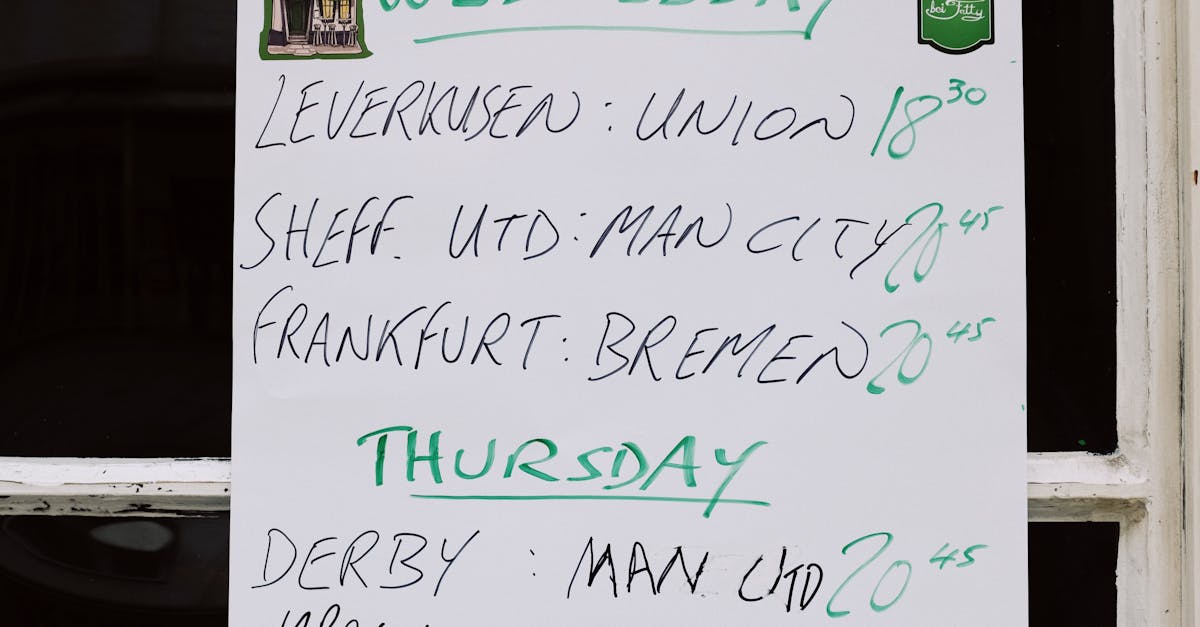 WEDNESDAY
bei Fatty
LEVERKUSEN : UNION 18 30
SHEFF. UTD : MAN CITY 20 45
FRANKFURT : BREMEN 20 45
THURSDAY
DERBY : MAN. UTD 20 45